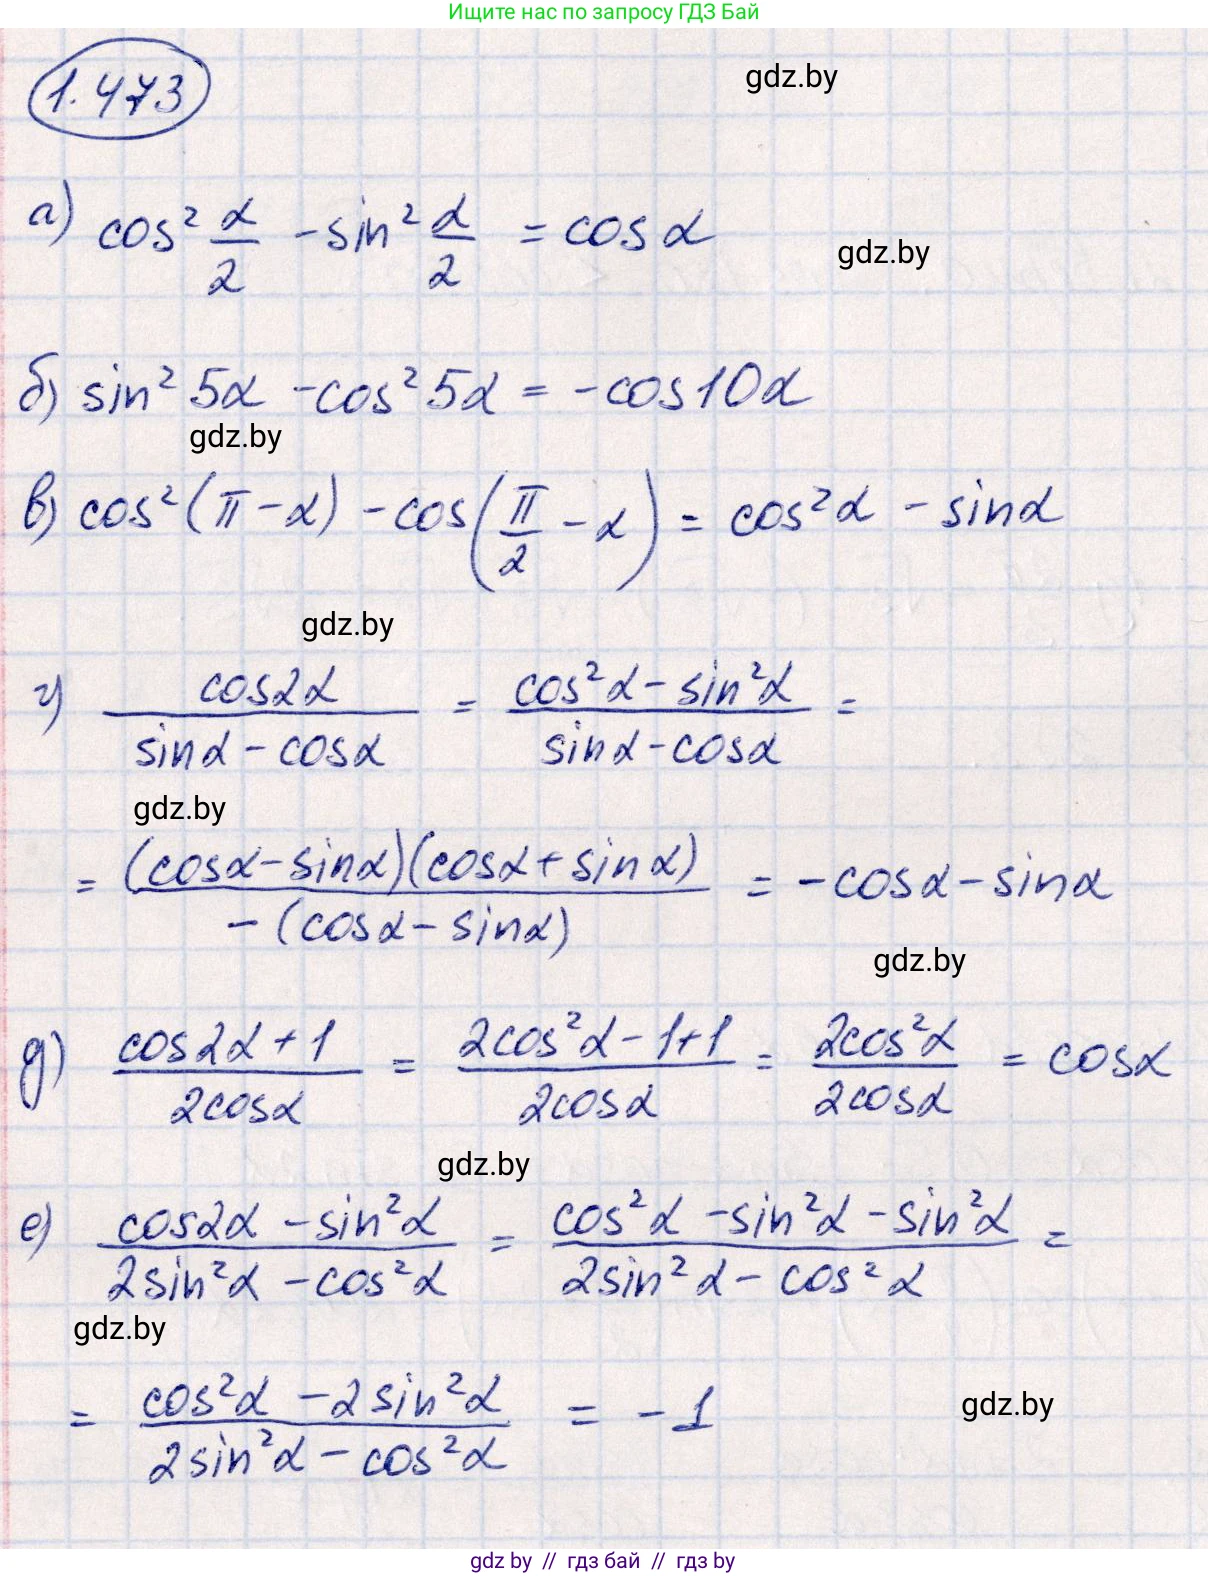 Ищите нас по запросу ГДЗ Бай
1.473
gdz.by
а) cos² α/2 - sin² α/2 = cos α
gdz.by
б) sin² 5α - cos² 5α = - cos 10α
gdz.by
в) cos² (π - α) - cos (π/2 - α) = cos² α - sin α
gdz.by
г) cos 2α / (sin α - cos α) = (cos² α - sin² α) / (sin α - cos α) =
gdz.by
= (cos α - sin α)(cos α + sin α) / -(cos α - sin α) = - cos α - sin α
gdz.by
д) (cos 2α + 1) / 2cos α = (2cos² α - 1 + 1) / 2cos α = 2cos² α / 2cos α = cos α
gdz.by
е) (cos 2α - sin² α) / (2sin² α - cos² α) = (cos² α - sin² α - sin² α) / (2sin² α - cos² α) =
gdz.by
= (cos² α - 2sin² α) / (2sin² α - cos² α) = - 1
gdz.by
gdz by // гдз бай // гдз by